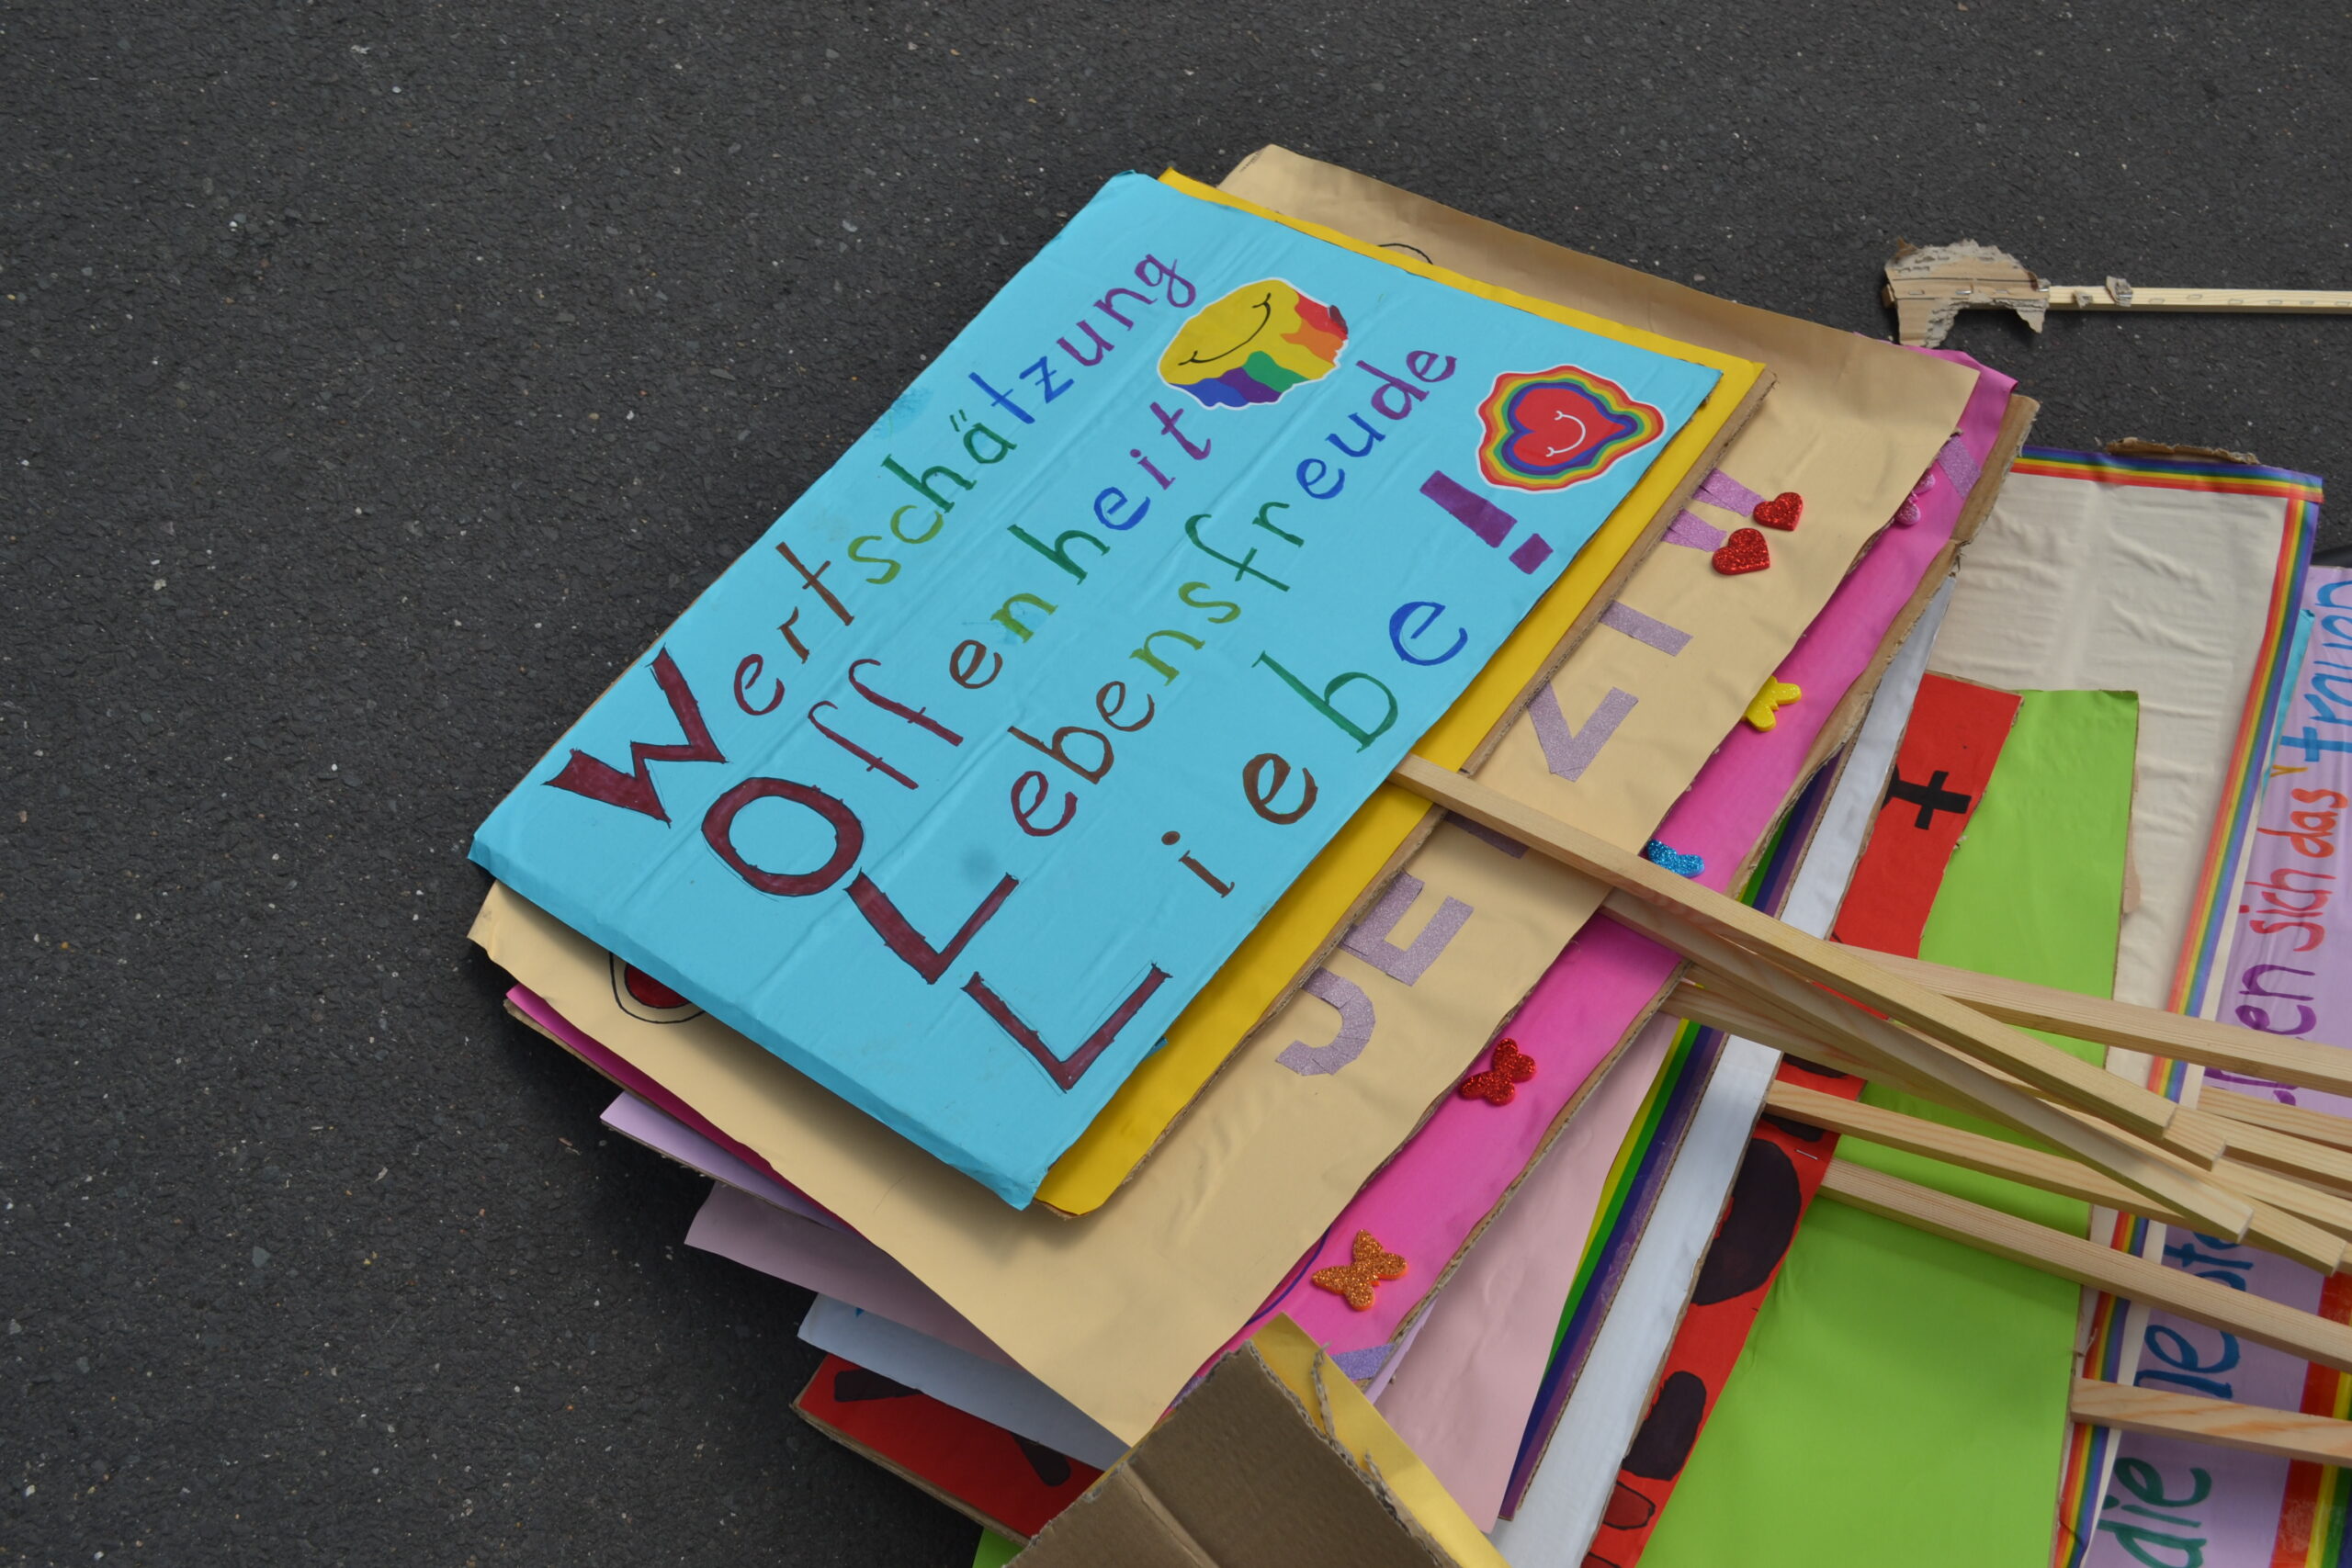 Wertschätzung
Offenheit
Lebensfreude
Liebe!
JETZT!!
+
en sich das
die